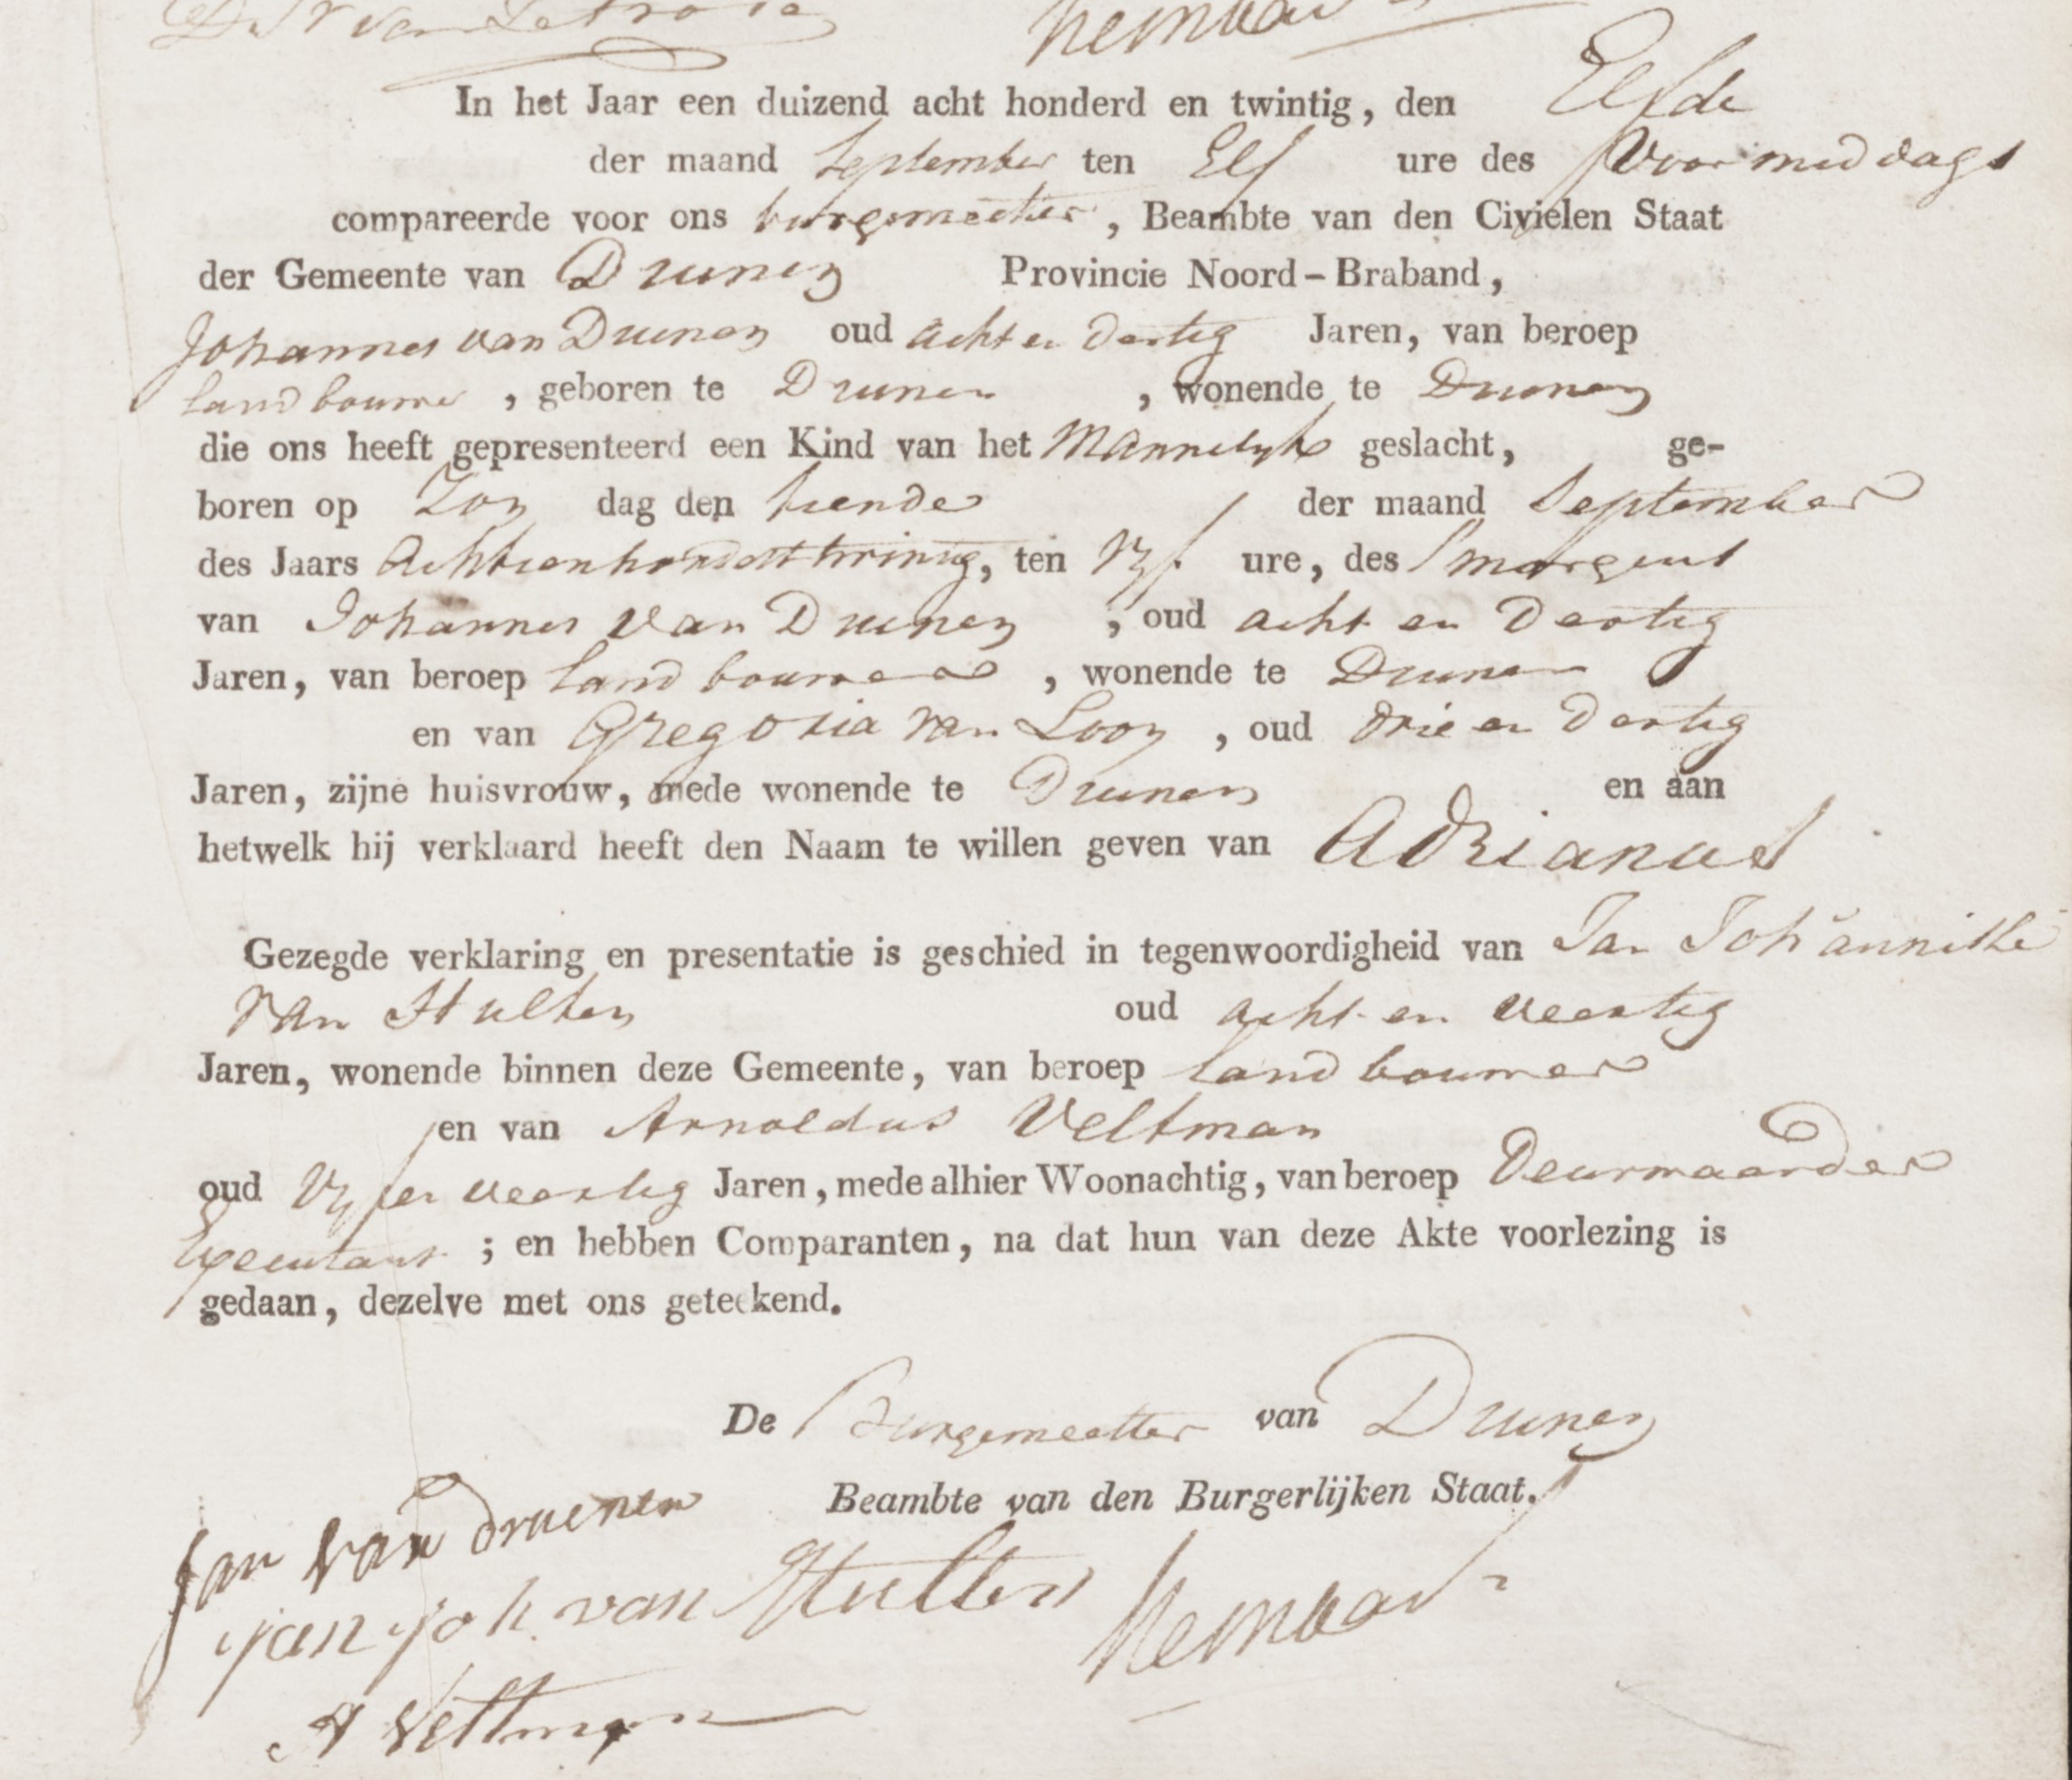 In het Jaar een duizend acht honderd en twintig, den Elfde
der maand September ten Elf ure des Voormiddags
compareerde voor ons burgemeester, Beambte van den Civielen Staat
der Gemeente van Drunen Provincie Noord-Braband,
Johannes van Drunen oud acht en dertig Jaren, van beroep
landbouwer, geboren te Drunen, wonende te Drunen
die ons heeft gepresenteerd een Kind van het Mannelyk geslacht, ge-
boren op Zon dag den tiende der maand September
des Jaars Achttienhondert twintig, ten Vyf ure, des smorgens
van Johannes van Drunen, oud acht en Dertig
Jaren, van beroep landbouwer, wonende te Drunen
en van Gregoria van Loon, oud drie en Dertig
Jaren, zijne huisvrouw, mede wonende te Drunen en aan
hetwelk hij verklaard heeft den Naam te willen geven van Adrianus
Gezegde verklaring en presentatie is geschied in tegenwoordigheid van Jan Johannisse
van Hulten oud acht en veertig
Jaren, wonende binnen deze Gemeente, van beroep landbouwer
en van Arnoldus Veltman
oud Vyf en veertig Jaren, mede alhier Woonachtig, van beroep Deurwaarder
Executant; en hebben Comparanten, na dat hun van deze Akte voorlezing is
gedaan, dezelve met ons geteekend.
De Burgemeester van Drunen
Beambte van den Burgerlijken Staat.
Jan van druenen
jan joh. van Hulten
A Veltman